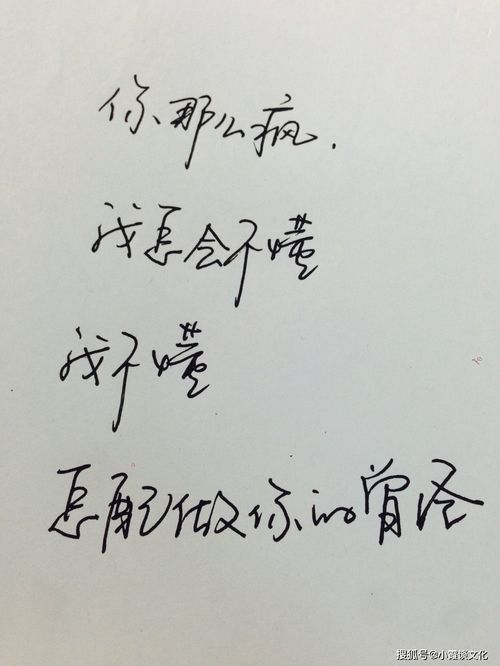 你那么疯.
我怎会不懂
我不懂
怎配做你的曾经
搜狐号@小霞谈文化